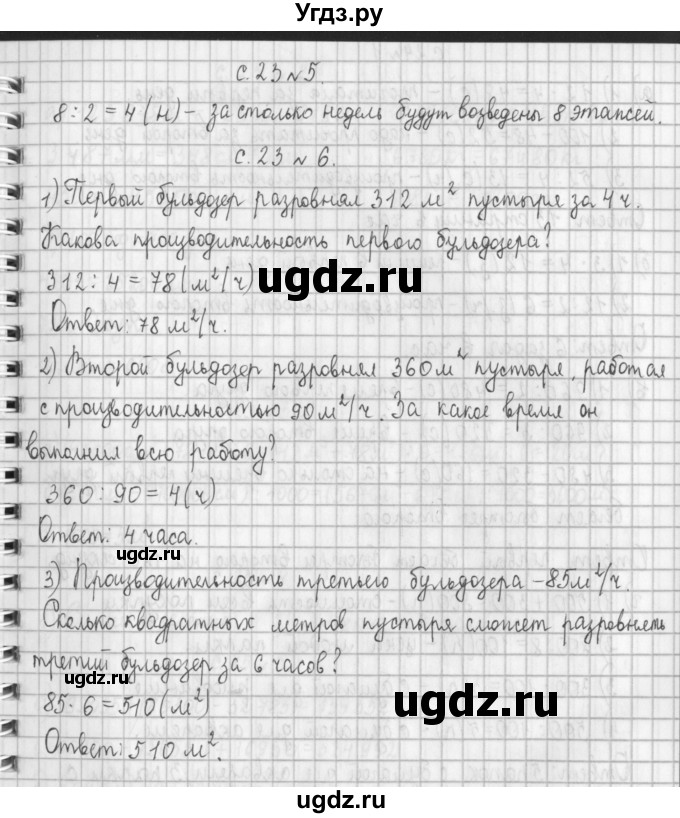 Угдз.ру
с. 23 № 5.
8 : 2 = 4 (н) - за столько недель будут возведены 8 этапсей.
с. 23 № 6.
1) Первый бульдозер разровнял 312 м² пустыря за 4 ч.
Какова производительность первого бульдозера?
312 : 4 = 78 (м²/ч)
ugdz.ru
Ответ: 78 м²/ч.
2) Второй бульдозер разровнял 360 м² пустыря, работая
с производительностью 90 м²/ч. За какое время он
выполнил всю работу?
360 : 90 = 4 (ч)
Ответ: 4 часа.
ugdz.ru
3) Производительность третьего бульдозера - 85 м²/ч.
Сколько квадратных метров пустыря сможет разровнять
третий бульдозер за 6 часов?
ugdz.ru
85 · 6 = 510 (м²)
ugdz.ru
Ответ: 510 м².
ugdz.ru